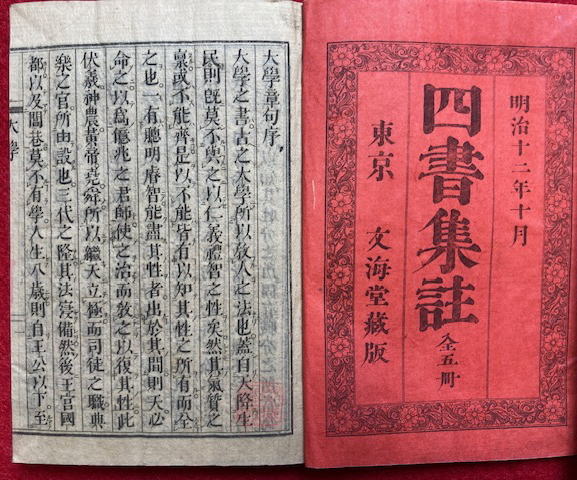 明治十二年十月
四書集註 全五冊
東京 文海堂藏版
大學章句序
大學之書古之大學所以敎人之法也蓋自天降生
民則既莫不與之以仁義禮智之性矣然其氣質之
稟或不能齊是以不能皆有以知其性之所有而全
之也一有聰明睿智能盡其性者出於其閒則天必
命之以爲億兆之君師使之治而敎之以復其性此
伏羲神農黃帝堯舜所以繼天立極而司徒之職典
樂之官所由設也三代之隆其法寖備然後王宮國
都以及閭巷莫不有學人生八歲則自王公以下至
大學